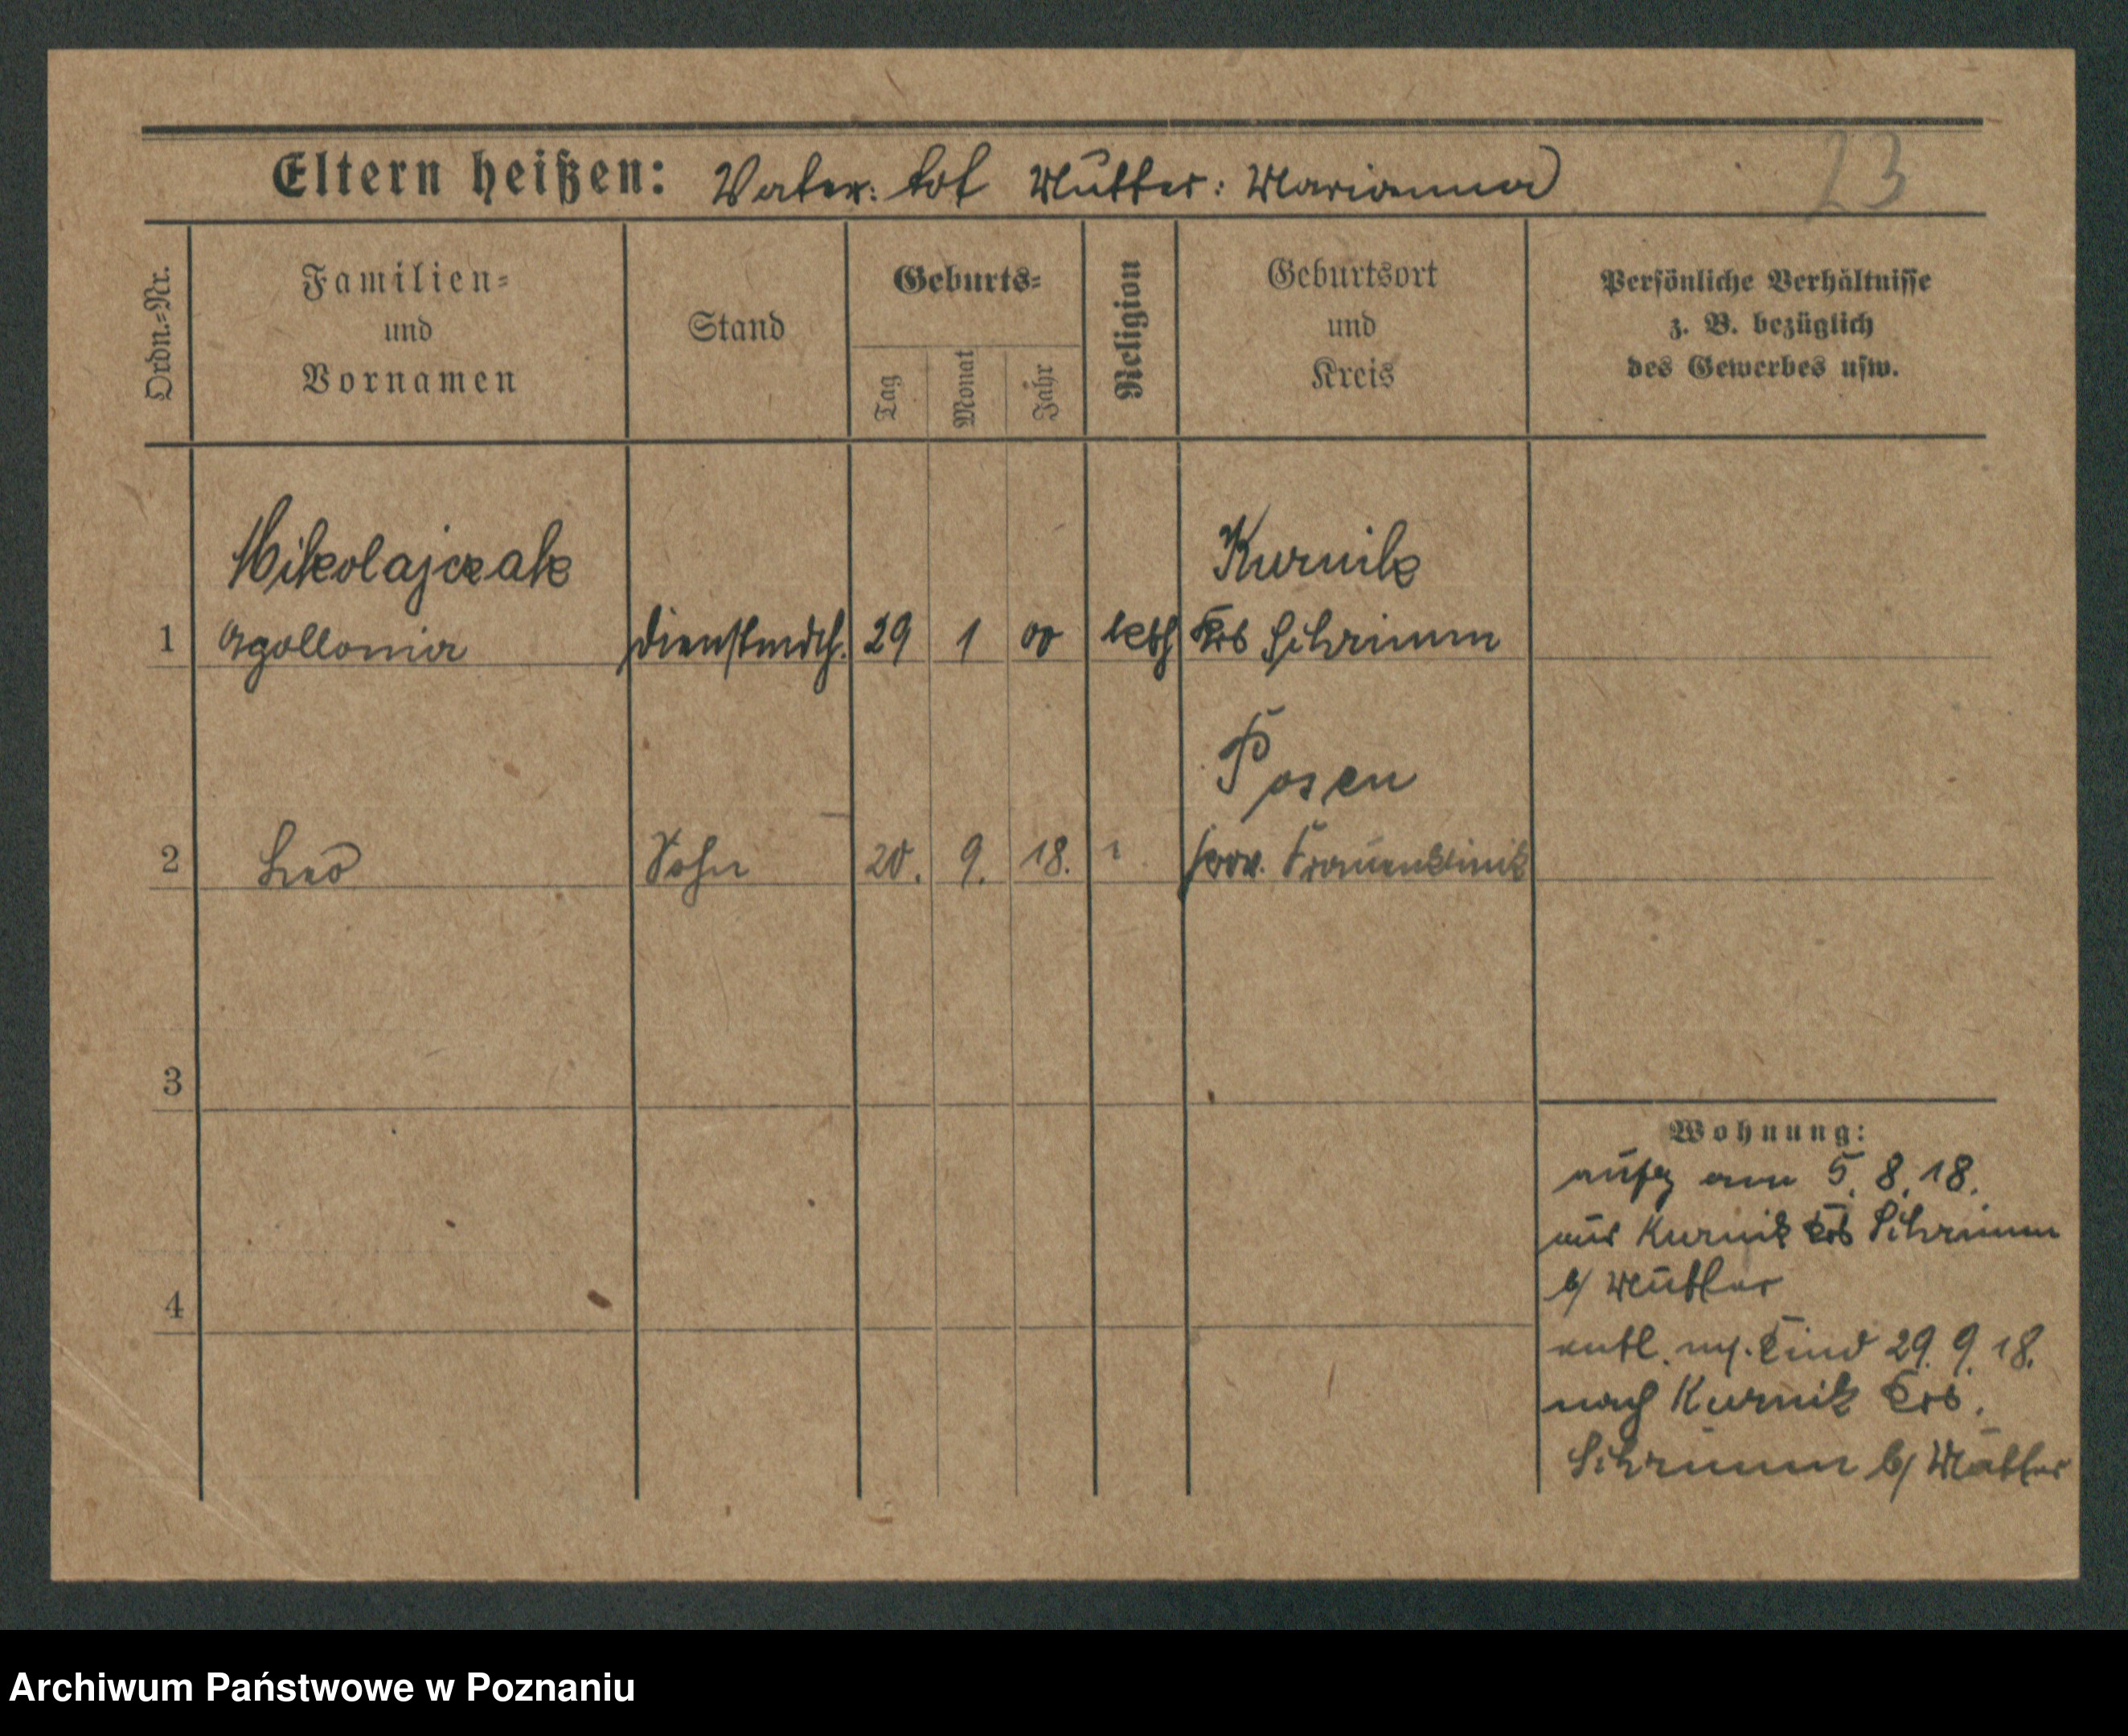 23
Eltern heißen: Vater: tot Mutter: Marianna
Ordn.=Nr.
Familien=
und
Vornamen
Stand
Geburts=
Tag
Monat
Jahr
Religion
Geburtsort
und
Kreis
Persönliche Verhältnisse
z. B. bezüglich
des Gewerbes usw.
Mikolajczak
Kurnik
1 Apollonia Dienstmdch. 29 1 00 kath Krs Schrimm
Posen
2 Leo Sohn 20. 9. 18. " prov. Frauenklinik
3
Wohnung:
aufg am 5. 8. 18.
aus Kurnik Krs Schrimm
b/ Mutter
4
entl. m. Kind 29. 9. 18.
nach Kurnik Krs.
Schrimm b/ Mutter
Archiwum Państwowe w Poznaniu